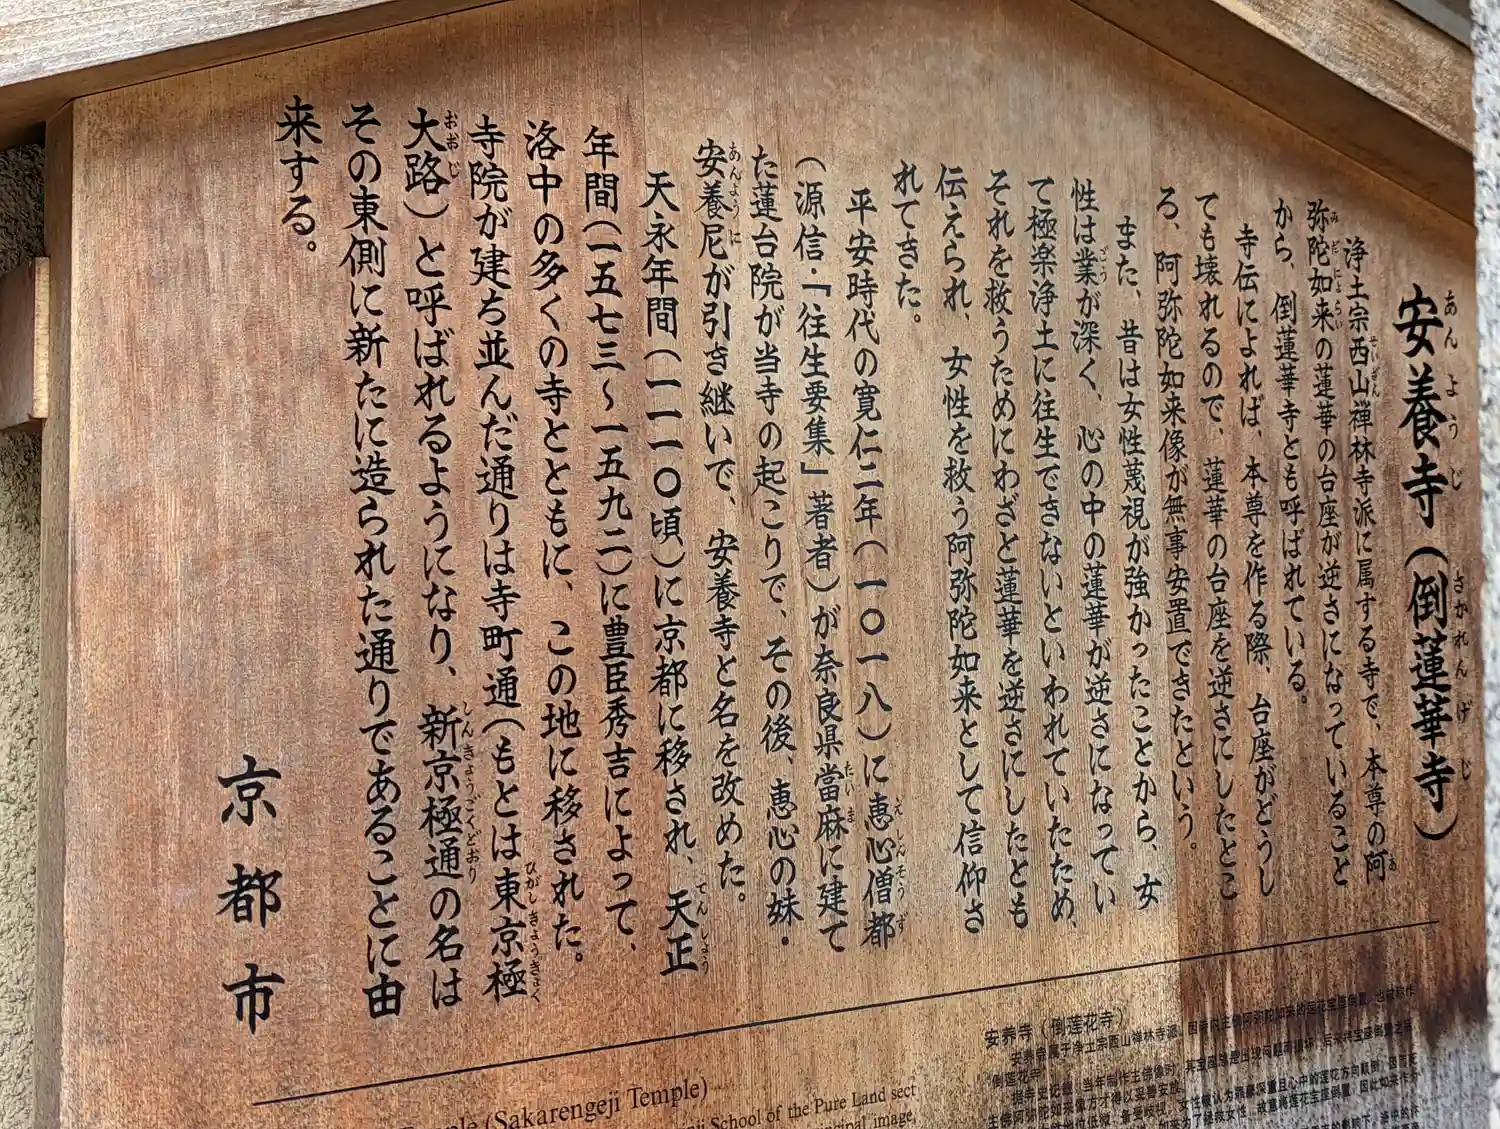 安養寺（倒蓮華寺）
あんようじ さかれんげじ
浄土宗西山禅林寺派に属する寺で、本尊の阿
せいざん あ
弥陀如来の蓮華の台座が逆さになっていること
みだにょらい
から、倒蓮華寺とも呼ばれている。
寺伝によれば、本尊を作る際、台座がどうし
ても壊れるので、蓮華の台座を逆さにしたとこ
る、阿弥陀如来像が無事安置できたという。
また、昔は女性蔑視が強かったことから、女
性は業が深く、心の中の蓮華が逆さになってい
ごう
て極楽浄土に往生できないといわれていたため、
それを救うためにわざと蓮華を逆さにしたとも
伝えられ、女性を救う阿弥陀如来として信仰さ
れてきた。
平安時代の寛仁二年（一〇一八）に恵心僧都
えしんそうず
（源信・「往生要集」著者）が奈良県當麻に建て
たいま
た蓮台院が当寺の起こりで、その後、恵心の妹・
安養尼が引き継いで、安養寺と名を改めた。
あんように
天永年間（一一一〇頃）に京都に移され、天正
てんしょう
年間（一五七三～一五九二）に豊臣秀吉によって、
洛中の多くの寺とともに、この地に移された。
寺院が建ち並んだ通りは寺町通（もとは東京極
ひがしきょうきょく
大路）と呼ばれるようになり、新京極通の名は
おおじ しんきょうごくどおり
その東側に新たに造られた通りであることに由
来する。
京都市
Temple (Sakarengeji Temple)
School of the Pure Land sect
principal image,
安养寺（倒莲花寺）
安养寺属于净土宗西山禅林寺派，因
倒莲花寺